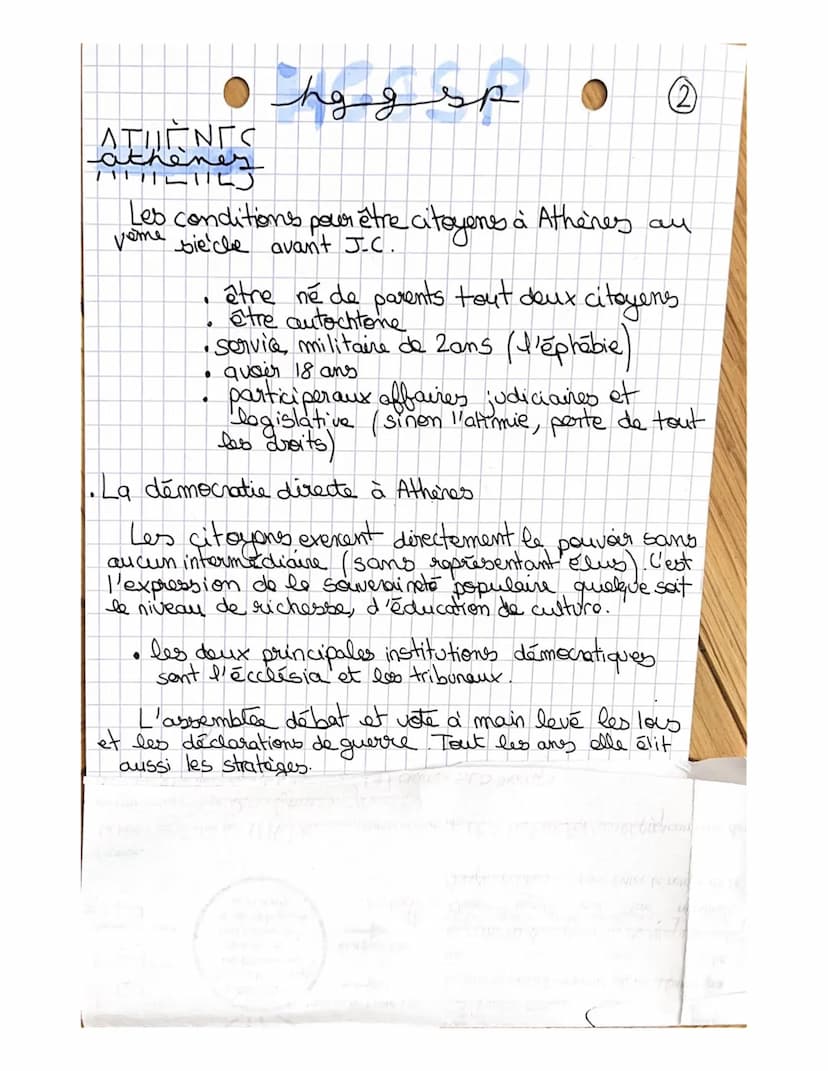 hggsp
2
ATHÈNES
athènes
Les conditions pour être citoyens à Athènes au
Vème siècle avant J-C.
• être né de parents tout deux citoyens
• être autochtone
• service militaire de 2ans (l'éphébie)
• avoir 18 ans
• participer aux affaires judiciaires et
législative (sinon l'atimie, perte de tout
les droits)
• La démocratie directe à Athènes
Les citoyens exercent directement le pouvoir sans
aucun intermédiaire (sans représentant élus). C'est
l'expression de le souveraineté populaire quelque soit
le niveau de richesse, d'éducation de culture.
• les deux principales institutions démocratiques
sont l'écclésia et les tribunaux.
L'assemblée débat et vote à main levé les lois
et les déclarations de guerre. Tout les ans elle élit
aussi les stratèges.